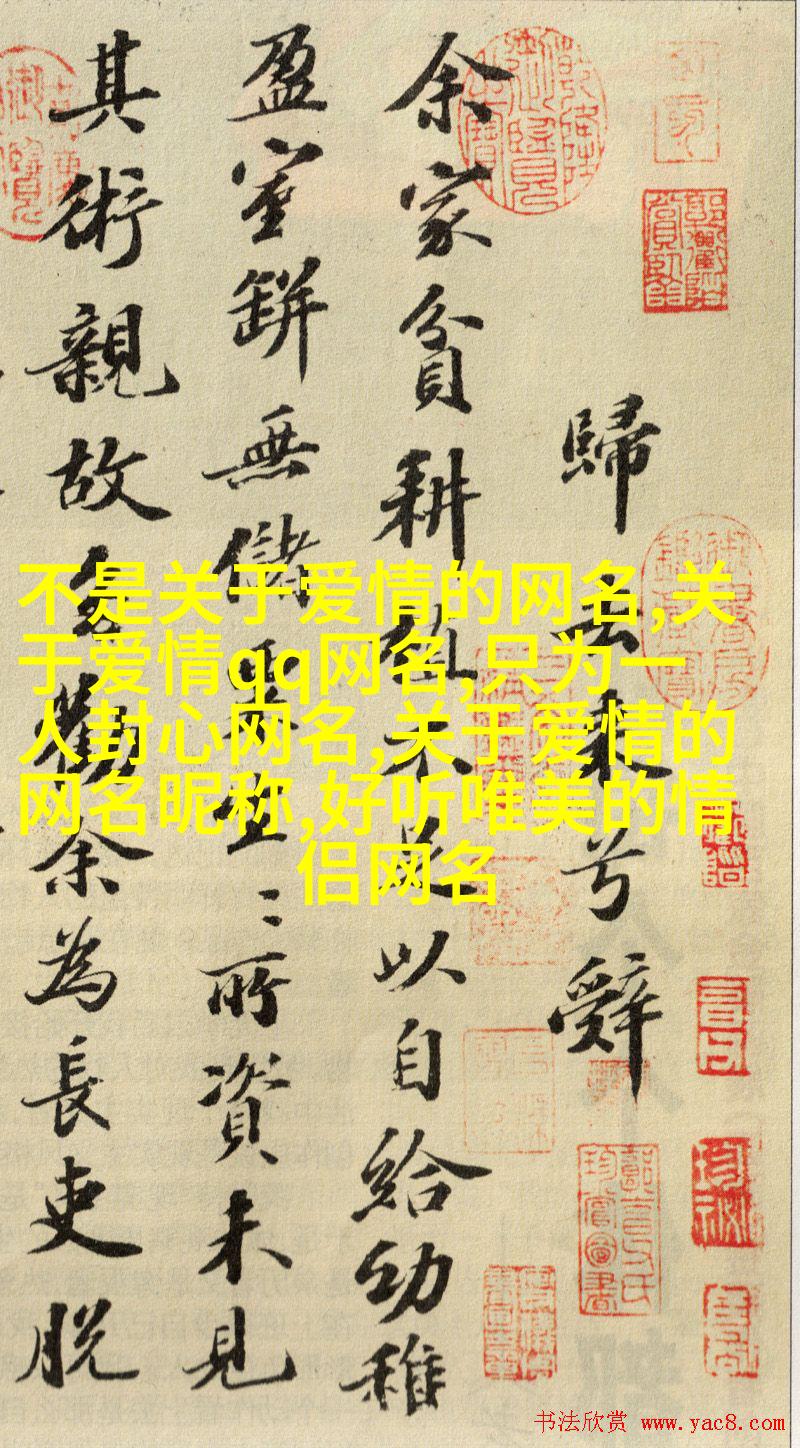 歸去来兮辭
余家貧耕植不足以自給幼稚
盈室缾無儲粟生〻所資未見
其術親故多勸余為長吏脫
不是关于爱情的网名,关
于爱情qq网名,只为一
人封心网名,关于爱情的
网名昵称,好听唯美的情
侣网名
书法欣赏 www.yac8.com